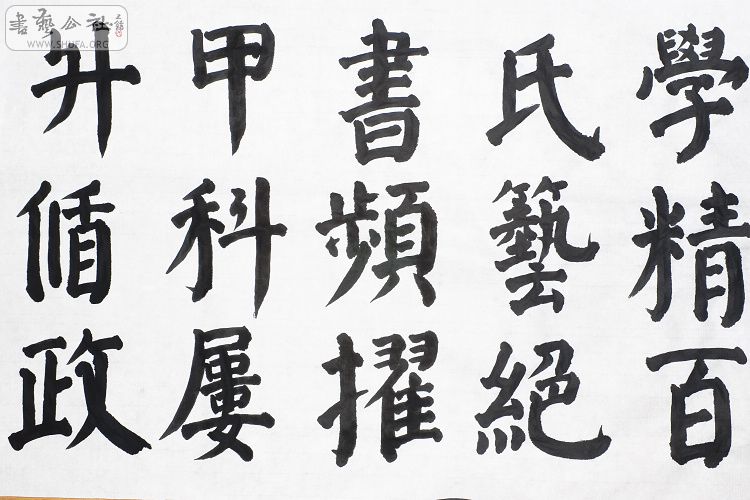 學精百
氏藝絕
書頻擢
甲科屢
升循政
書藝公社
WWW.SHUFA.ORG